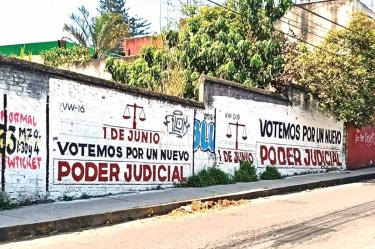 NORMAL
13 MZO.
1304
TWICKET
VW-16
1 DE JUNIO
VOTEMOS POR UN NUEVO
PODER JUDICIAL
VW-016
1 DE JUNIO
VOTEMOS POR UN NUEVO
PODER JUDICIAL